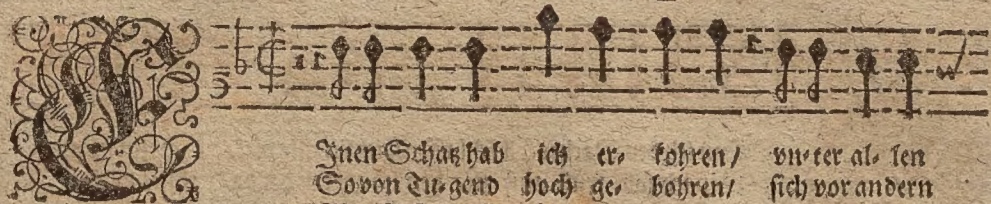 EJnen Schatz hab ich er- kohren/ vn-ter al- len
So von Tu-gend hoch ge- bohren/ sich vor andern